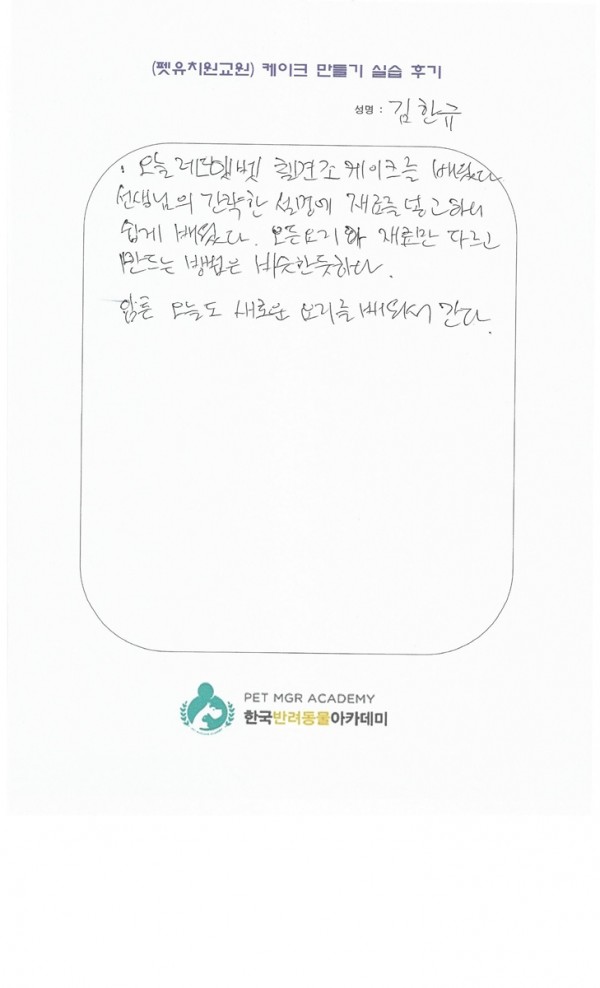 (펫유치원교원) 케이크 만들기 실습 후기
성명 : 김한규
: 오늘 레드벨벳 케이크를 배웠다
선생님의 간략한 설명에 재료를 넣고하니
쉽게 배웠다. 모든요리와 재료만 다르고
만드는 방법은 비슷한듯하다.
암튼 오늘도 새로운 요리를 배워서 간다.
PET MGR ACADEMY
한국반려동물아카데미